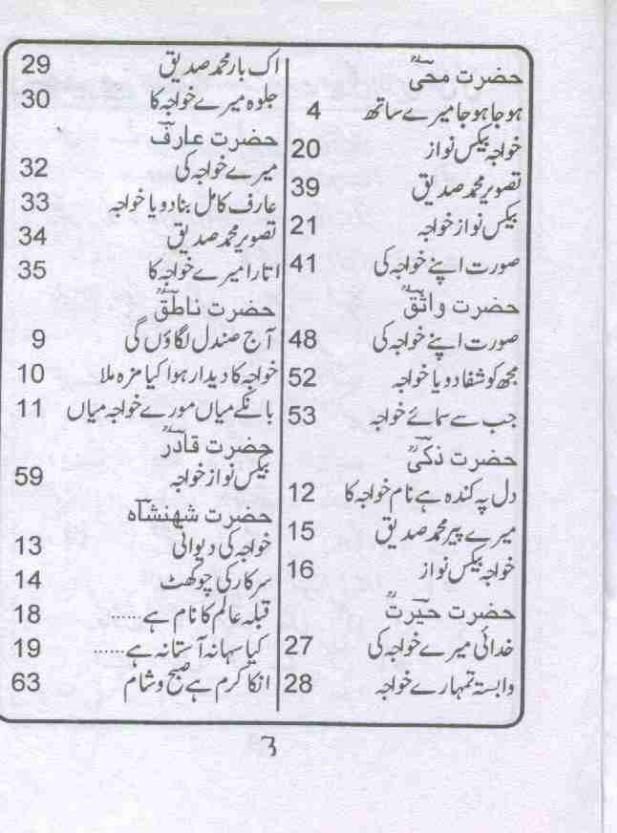 حضرت محیؒ
ہوجا ہوجا میرے ساتھ 4
خواجہ بیکس نواز 20
تصویر محمد صدیق 39
بیکس نواز خواجہ 21
صورت اپنے خواجہ کی 41
حضرت واثقؒ
صورت اپنے خواجہ کی 48
مجھ کو شفا دو یا خواجہ 52
جب سے سمائے خواجہ 53
حضرت ذکیؒ
دل پہ کندہ ہے نام خواجہ کا 12
میرے پیر محمد صدیق 15
خواجہ بیکس نواز 16
حضرت حیرتؒ
خدائی میرے خواجہ کی 27
وابستہ تمہارے خواجہ 28
اک بار محمد صدیق 29
جلوہ میرے خواجہ کا 30
حضرت عارفؔ
میرے خواجہ کی 32
عارف کامل بنا دو یا خواجہ 33
تصویر محمد صدیق 34
اتارا میرے خواجہ کا 35
حضرت ناطقؒ
آج صندل لگاؤں گی 9
خواجہ کا دیدار ہوا کیا مزہ ملا 10
بانکے میاں مورے خواجہ میاں 11
حضرت قادرؒ
بیکس نواز خواجہ 59
حضرت شهنشاؔہ
خواجہ کی دیوانی 13
سرکار کی چوکھٹ 14
قبلہ عالم کا نام ہے...... 18
کیا سہانہ آستانہ ہے...... 19
انکا کرم ہے صبح و شام 63
3